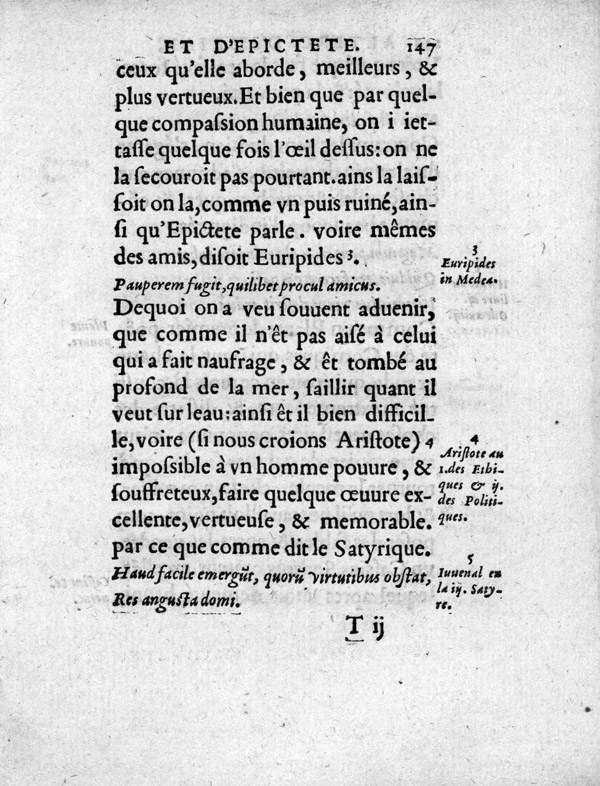 ET D'EPICTETE. 147
ceux qu'elle aborde, meilleurs, &
plus vertueux. Et bien que par quel-
que compaſsion humaine, on i iet-
taſſe quelque fois l'œil deſſus: on ne
la ſecouroit pas pourtant. ains la laiſ-
ſoit on la, comme vn puis ruiné, ain-
ſi qu'Epictete parle. voire mêmes
des amis, diſoit Euripides 3.
Pauperem fugit, quilibet procul amicus.
Dequoi on a veu ſouuent aduenir,
que comme il n'êt pas aisé à celui
qui a fait naufrage, & êt tombé au
profond de la mer, ſaillir quant il
veut ſur leau: ainſi êt il bien difficil-
le, voire (ſi nous croions Ariſtote) 4
impoſsible à vn homme pouure, &
ſouffreteux, faire quelque œuure ex-
cellente, vertueuſe, & memorable.
par ce que comme dit le Satyrique.
Haud facile emergūt, quorū virtutibus obſtat,
Res anguſta domi.
T ij
3
Euripides
in Medea.
4
Ariſtote au
1. des Ethi-
ques & ij.
des Politi-
ques.
5
Iuuenal en
la iij. Saty-
re.